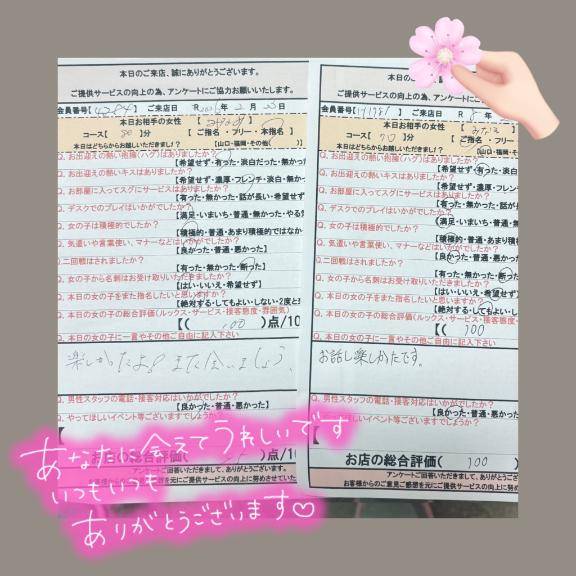 本日のご来店、誠にありがとうございます。
ご提供サービスの向上の為、アンケートにご協力お願いいたします。
会員番号【4284】 ご来店日 R 年 2 月 23日
本日お相手の女性【
コース【 80 】分 【 ご指名・フリー・本指名】
本日はどちらからお越しいただきましたか!?【山口・福岡・その他(
Q. お出迎えの熱い抱擁(ハグ)はありましたか?
【希望せず・有った・淡白だった・無かっ
Q. お出迎えの熱いキスはありましたか?
【希望せず・濃厚・フレンチ・淡白・無
Q. お部屋に入ってスグにサービスはありましたか?
【有った・無かった・話が長い・希望せ
Q. デスクでのプレイはいかがでしたか?
【満足・いまいち・普通・無かった・やる気
Q. 女の子は積極的でしたか?
【積極的・普通・あまり積極的ではなか
Q. 気遣いや言葉使い、マナーなどはいかがでしたか?
【良かった・普通・悪かった】
Q. 二回戦はされましたか?
【有った・無かった・断った】
Q. 女の子から名刺はお受け取りいただきましたか?
【はい・いいえ・希望せず】
Q. 本日の女の子をまた指名したいと思いますか?
【絶対する・してもよい・しない・2度と
Q. 本日の女の子の総合評価(ルックス・サービス・接客態度・雰囲気)
【( 100 )点/10
Q. 本日の女の子に一言やその他ご自由に記入下さい
楽しかったよ。また会いましょう。
Q. 男性スタッフの電話・接客対応はいかがでしたか?
【良かった・普通・悪かった】
Q. やってほしいイベント等ございますでしょうか?
お店の総合評価( )点/10
アンケートご回答いただきまして、ありがとうございます。
お客様からのご意見ご感想を元にご提供サービスの向上に努めさせていた
本日のご来店、誠にありがとうございます。
ご提供サービスの向上の為、アンケートにご協力お願い
会員番号【 】 ご来店日 R 8 年
本日お相手の女性【
コース【 70 】分 【 ご指名・フリー
本日はどちらからお越しいただきましたか!?【山口・福岡・
Q. お出迎えの熱い抱擁(ハグ)はありましたか?
【希望せず・有った・淡白
Q. お出迎えの熱いキスはありましたか?
【希望せず・濃厚・フレン
Q. お部屋に入ってスグにサービスはありましたか?
【有った・無かった・話が
Q. デスクでのプレイはいかがでしたか?
【満足・いまいち・普通・無
Q. 女の子は積極的でしたか?
【積極的・普通・あまり積
Q. 気遣いや言葉使い、マナーなどはいかがでしたか?
【良かった・普通・悪かった
Q. 二回戦はされましたか?
【有った・無かった・断った
Q. 女の子から名刺はお受け取りいただきましたか?
【はい・いいえ・希望せず】
Q. 本日の女の子をまた指名したいと思いますか?
【絶対する・してもよい・し
Q. 本日の女の子の総合評価(ルックス・サービス・接客態度・
【( 100
Q. 本日の女の子に一言やその他ご自由に記入下さい
お話し楽しかたです。
Q. 男性スタッフの電話・接客対応はいかがでしたか?
【良かった・普通・悪かった
Q. やってほしいイベント等ございますでしょうか?
お店の総合評価( 100
アンケートご回答いただきまして、ありがとう
お客様からのご意見ご感想を元にご提供サービスの向上に努め
あなたに会えてうれしいです
いつもいつも
ありがとうございます♡